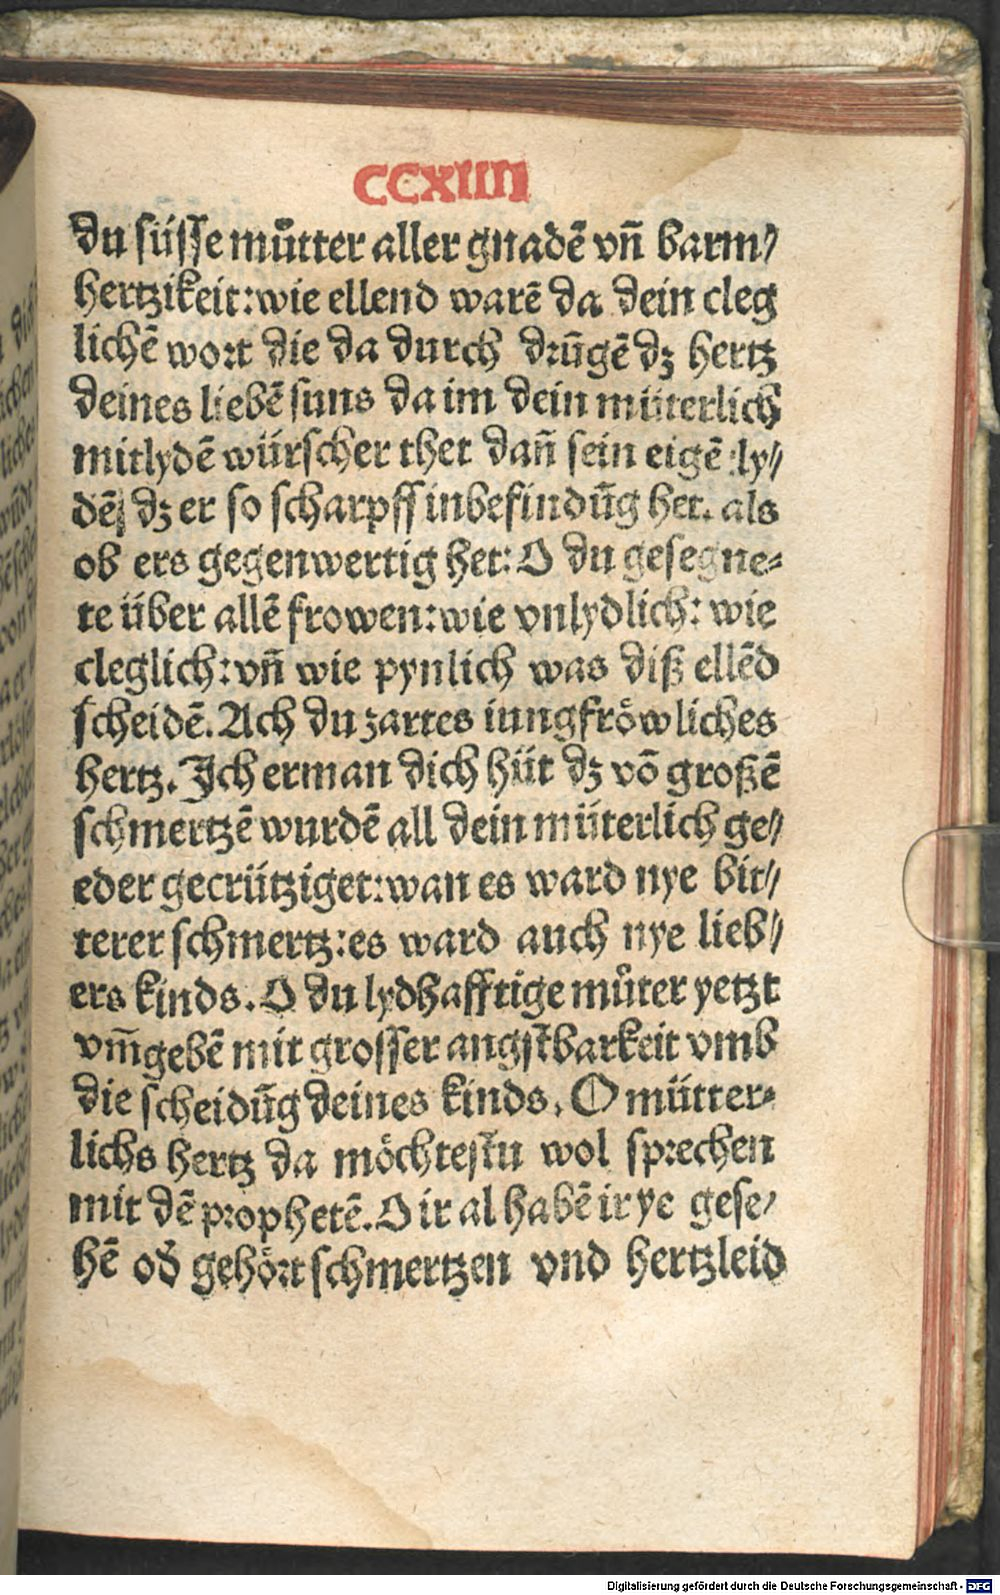 CCXIIII
du süsse můtter aller gnadē vn̄ barm⸗
hertzikeit:wie ellend warē da dein cleg
lichē wort die da durch drūgē dz hertz
deines liebē suns da im dein müterlich
mitlydē würscher thet dan̄ sein eigē ly⸗
dē dz er so scharpff inbefindūg het. als
ob ers gegenwertig het: O du gesegne⸗
te über allē frowen:wie vnlydlich: wie
cleglich:vn̄ wie pynlich was diß ellēd
scheidē. Ach du zartes iungfröwliches
hertz. Ich erman dich hüt dz vō großē
schmertzē wurdē all dein müterlich ge⸗
eder gecrütziget:wan es ward nye bit⸗
terer schmertz:es ward auch nye lieb⸗
ers kinds. O du lydhafftige můter yetzt
vm̄gebē mit grosser angstbarkeit vmb
die scheidūg deines kinds. O mütter⸗
lichs hertz da möchtestu wol sprechen
mit dē prophetē. O ir al habē ir ye gese⸗
hē od̄ gehört schmertzen vnd hertzleid
Digitalisierung gefördert durch die Deutsche Forschungsgemeinschaft - DFG